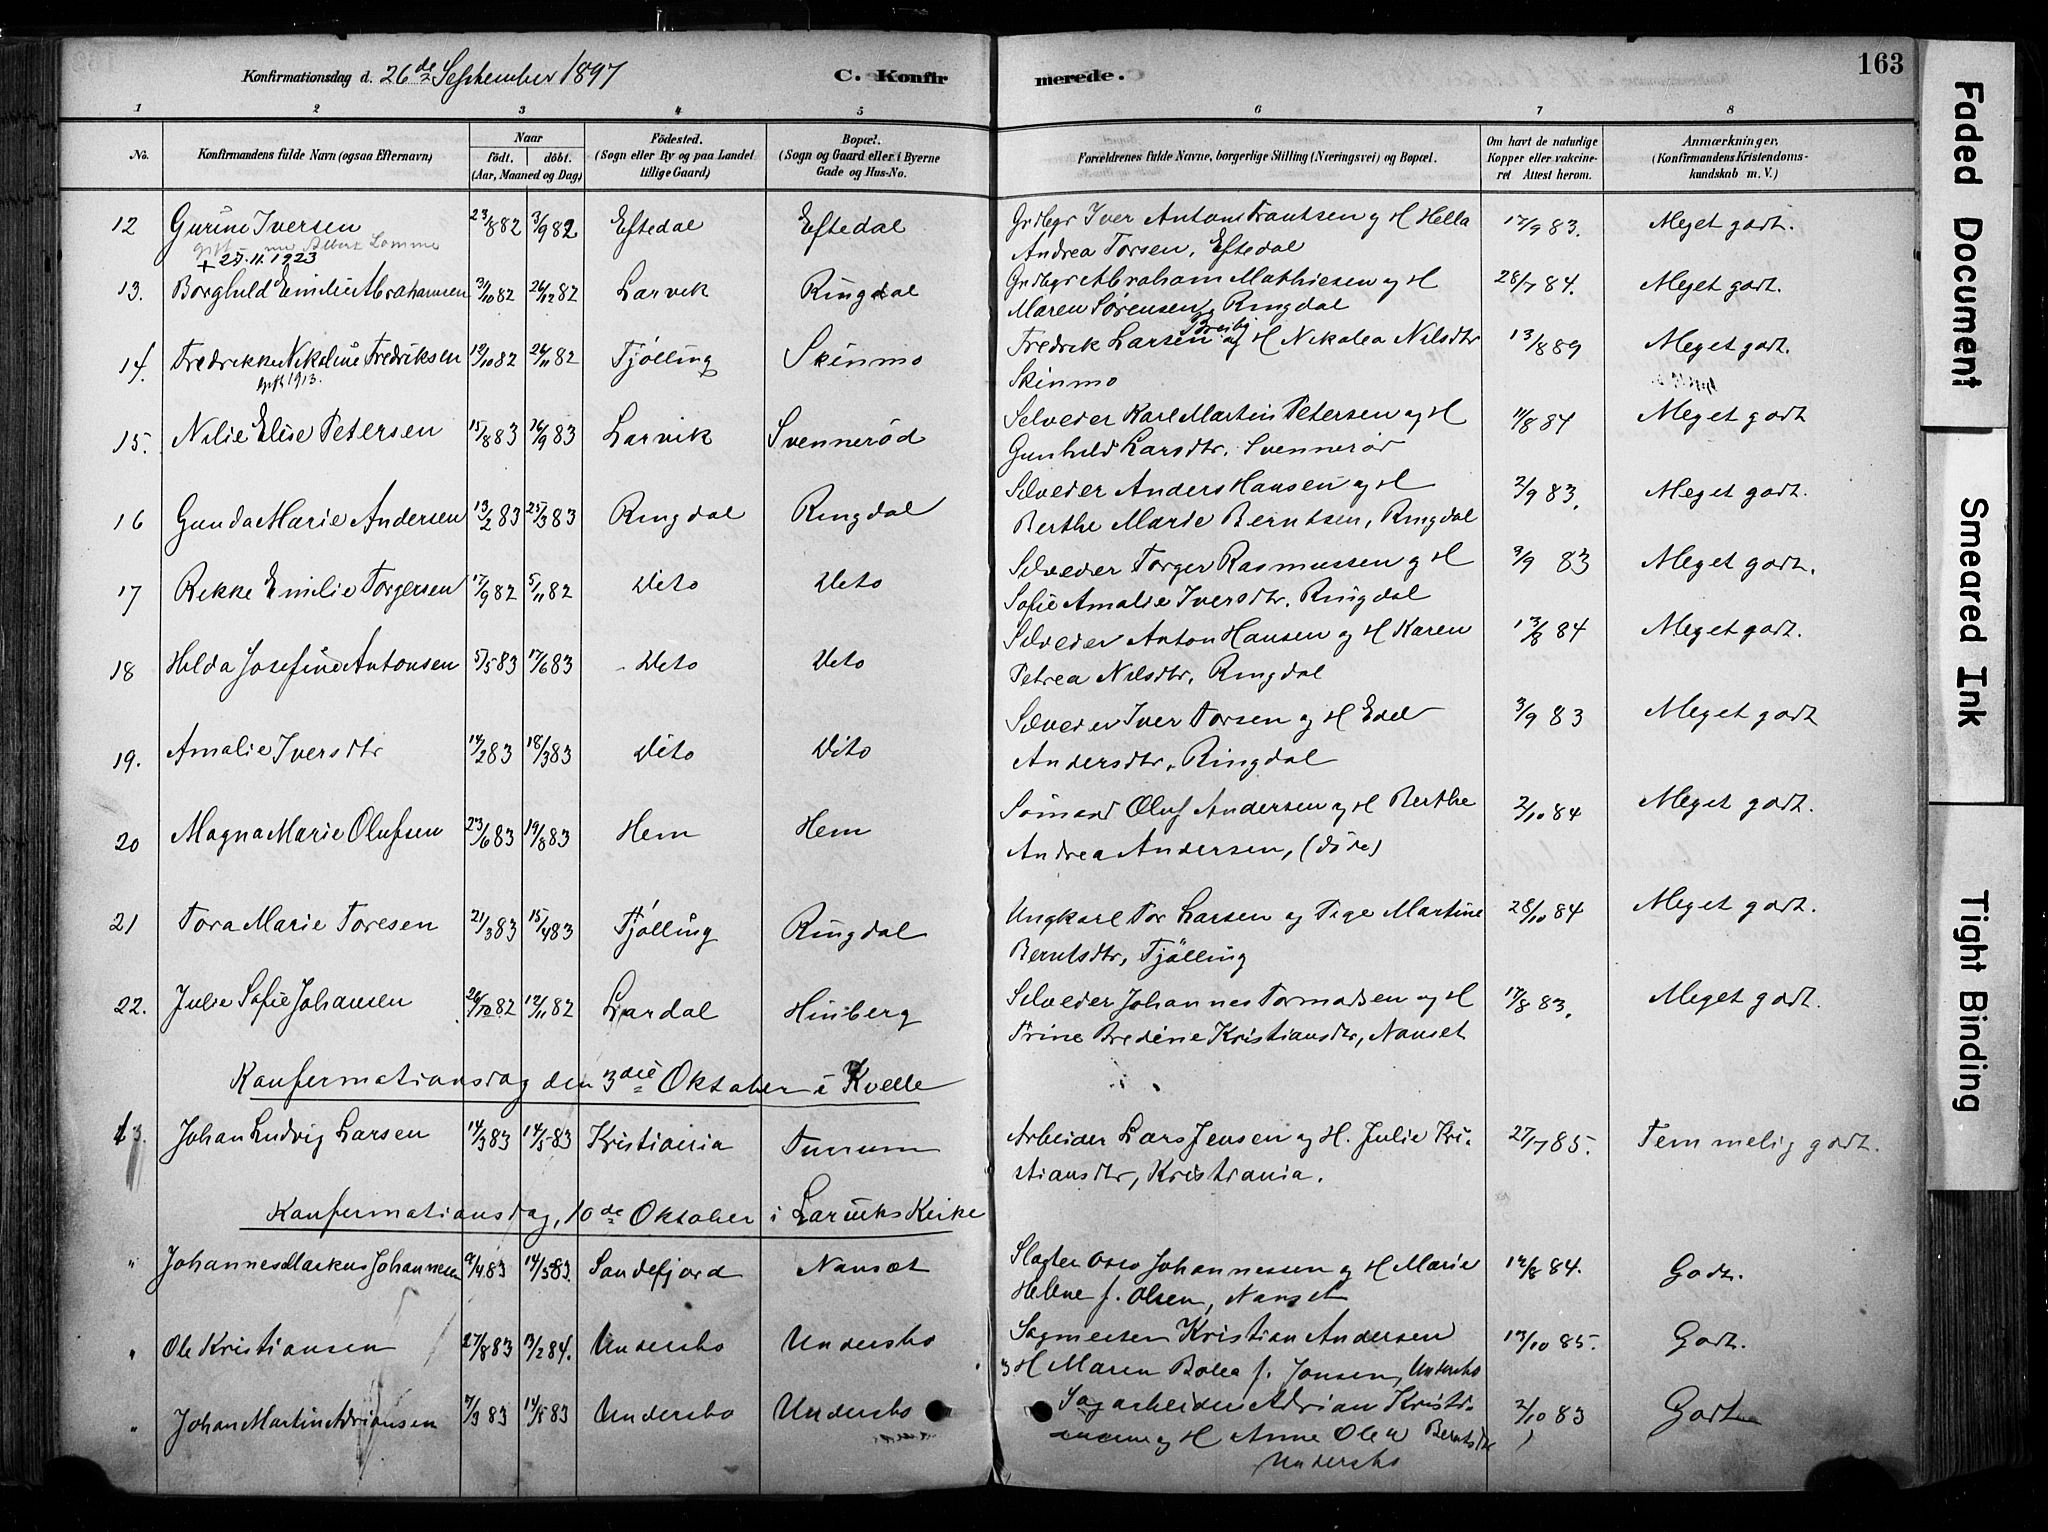 Konfirmationsdag d. 26de September 1897 C. Konfirmerede. 163
1 2 3 4 5 6 7 8
No. Konfirmandens fulde Navn (ogsaa Efternavn)
Naar
født. døbt.
(Aar, Maaned og Dag)
Fødested.
(Sogn eller By og paa Landet
tillige Gaard)
Bopæl.
(Sogn og Gaard eller i Byerne
Gade og Hus-No.
Forældrenes fulde Navne, borgerlige Stilling (Næringsvei) og Bopæl.
Om havt de naturlige
Kopper eller vakcine-
ret Attest herom.
Anmærkninger.
(Konfirmandens Kristendoms-
kundskab m. V.)
12 Gurine Iversen 23/8 82 3/9 82 Eftedal Eftedal Grdbgr Iver Anton Frantsen og H Hella 17/9 83. Meget godt.
Andrea Torsen, Eftedal
+ 25.11.1923
13. Borghild Emilie Abrahamsen 3/10 82 26/12 82 Larvik Ringdal Grdbgr Abraham Mathiesen og H 28/7 84. Meget godt.
Maren Sørensen, Ringdal
14. Fredrikke Nikoline Fredriksen 12/10 82 26/11 82 Tjølling Skinmo Fredrik Larsen og H Nikolea Nilsdtr 13/8 89 Meget godt.
gift 1913. Skinmo
15. Nilie Elise Petersen 15/8 83 16/9 83 Larvik Svennerød Selveder Karl Martin Petersen og H 11/8 84 Meget godt
Gunhild Larsdtr. Svennerød
16 Gunda Marie Andersen 13/2 83 25/3 83 Ringdal Ringdal Selveder Anders Hansen og H 2/9 83. Meget godt.
Berthe Marie Berntsen, Ringdal
17 Rikke Emilie Torgersen 17/9 82 5/11 82 Dito Dito Selveder Torger Rasmussen og H 2/9 83 Meget godt.
Sofie Amalie Iversdtr. Ringdal
18 Hilda Josefine Antonsen 5/5 83 17/6 83 Dito Dito Selveder Anton Hansen og H Karen 13/8 84 Meget godt.
Petrea Nilsdtr, Ringdal
19. Amalie Iversdtr 14/2 83 18/3 83 Dito Dito Selveder Iver Torsen og H Edel 3/9 83 Meget godt
Andersdtr, Ringdal
20 Magna Marie Olufsen 23/6 83 19/8 83 Hem Hem Sømand Oluf Andersen og H Berthe 2/10 84 Meget godt.
Andrea Andersen, (døde)
21 Tora Marie Toresen 21/3 83 15/4 83 Tjølling Ringdal Ungkarl Tor Larsen og Pige Martine 28/10 84 Meget godt.
Berntsdtr, Tjølling
22. Julie Sofie Johansen 26/10 82 12/11 82 Lardal Hinberg Selveder Johannes Tormodsen og H 17/8 83. Meget godt.
Trine Bredine Kristiansdtr, Nanset
Konfirmationsdag den 3die Oktober i Kvelle
Johan Ludvig Larsen 14/3 83 14/5 83 Kristiania Arbeider Lars Jensen og H. Julie Kri- 27/7 85. Temmelig godt.
stiansdtr, Kristiania.
Konfirmationsdag, 10de Oktober i Larviks Kirke
" Johannes Markus Johannesen 9/4 83 14/5 83. Sandefjord Nanset Slagter Johannessen og H Marie 12/8 84. Godt.
Helene f. Olsen, Nanset
" Ole Kristiansen 27/8 83 13/2 84. Undersbo Undersbo Sagmester Kristian Andersen 13/10 85. Godt.
og H Maren Bolea f. Jonsen, Undersbo
" Johan Martin Adriansen 7/3 83 14/5 83 Undersbo Undersbo Sagarbeider Adrian Kristi- 2/10 83 Godt
og H Anne Olea Berntsdtr
Undersbo
Faded Document
Smeared Ink
Tight Binding